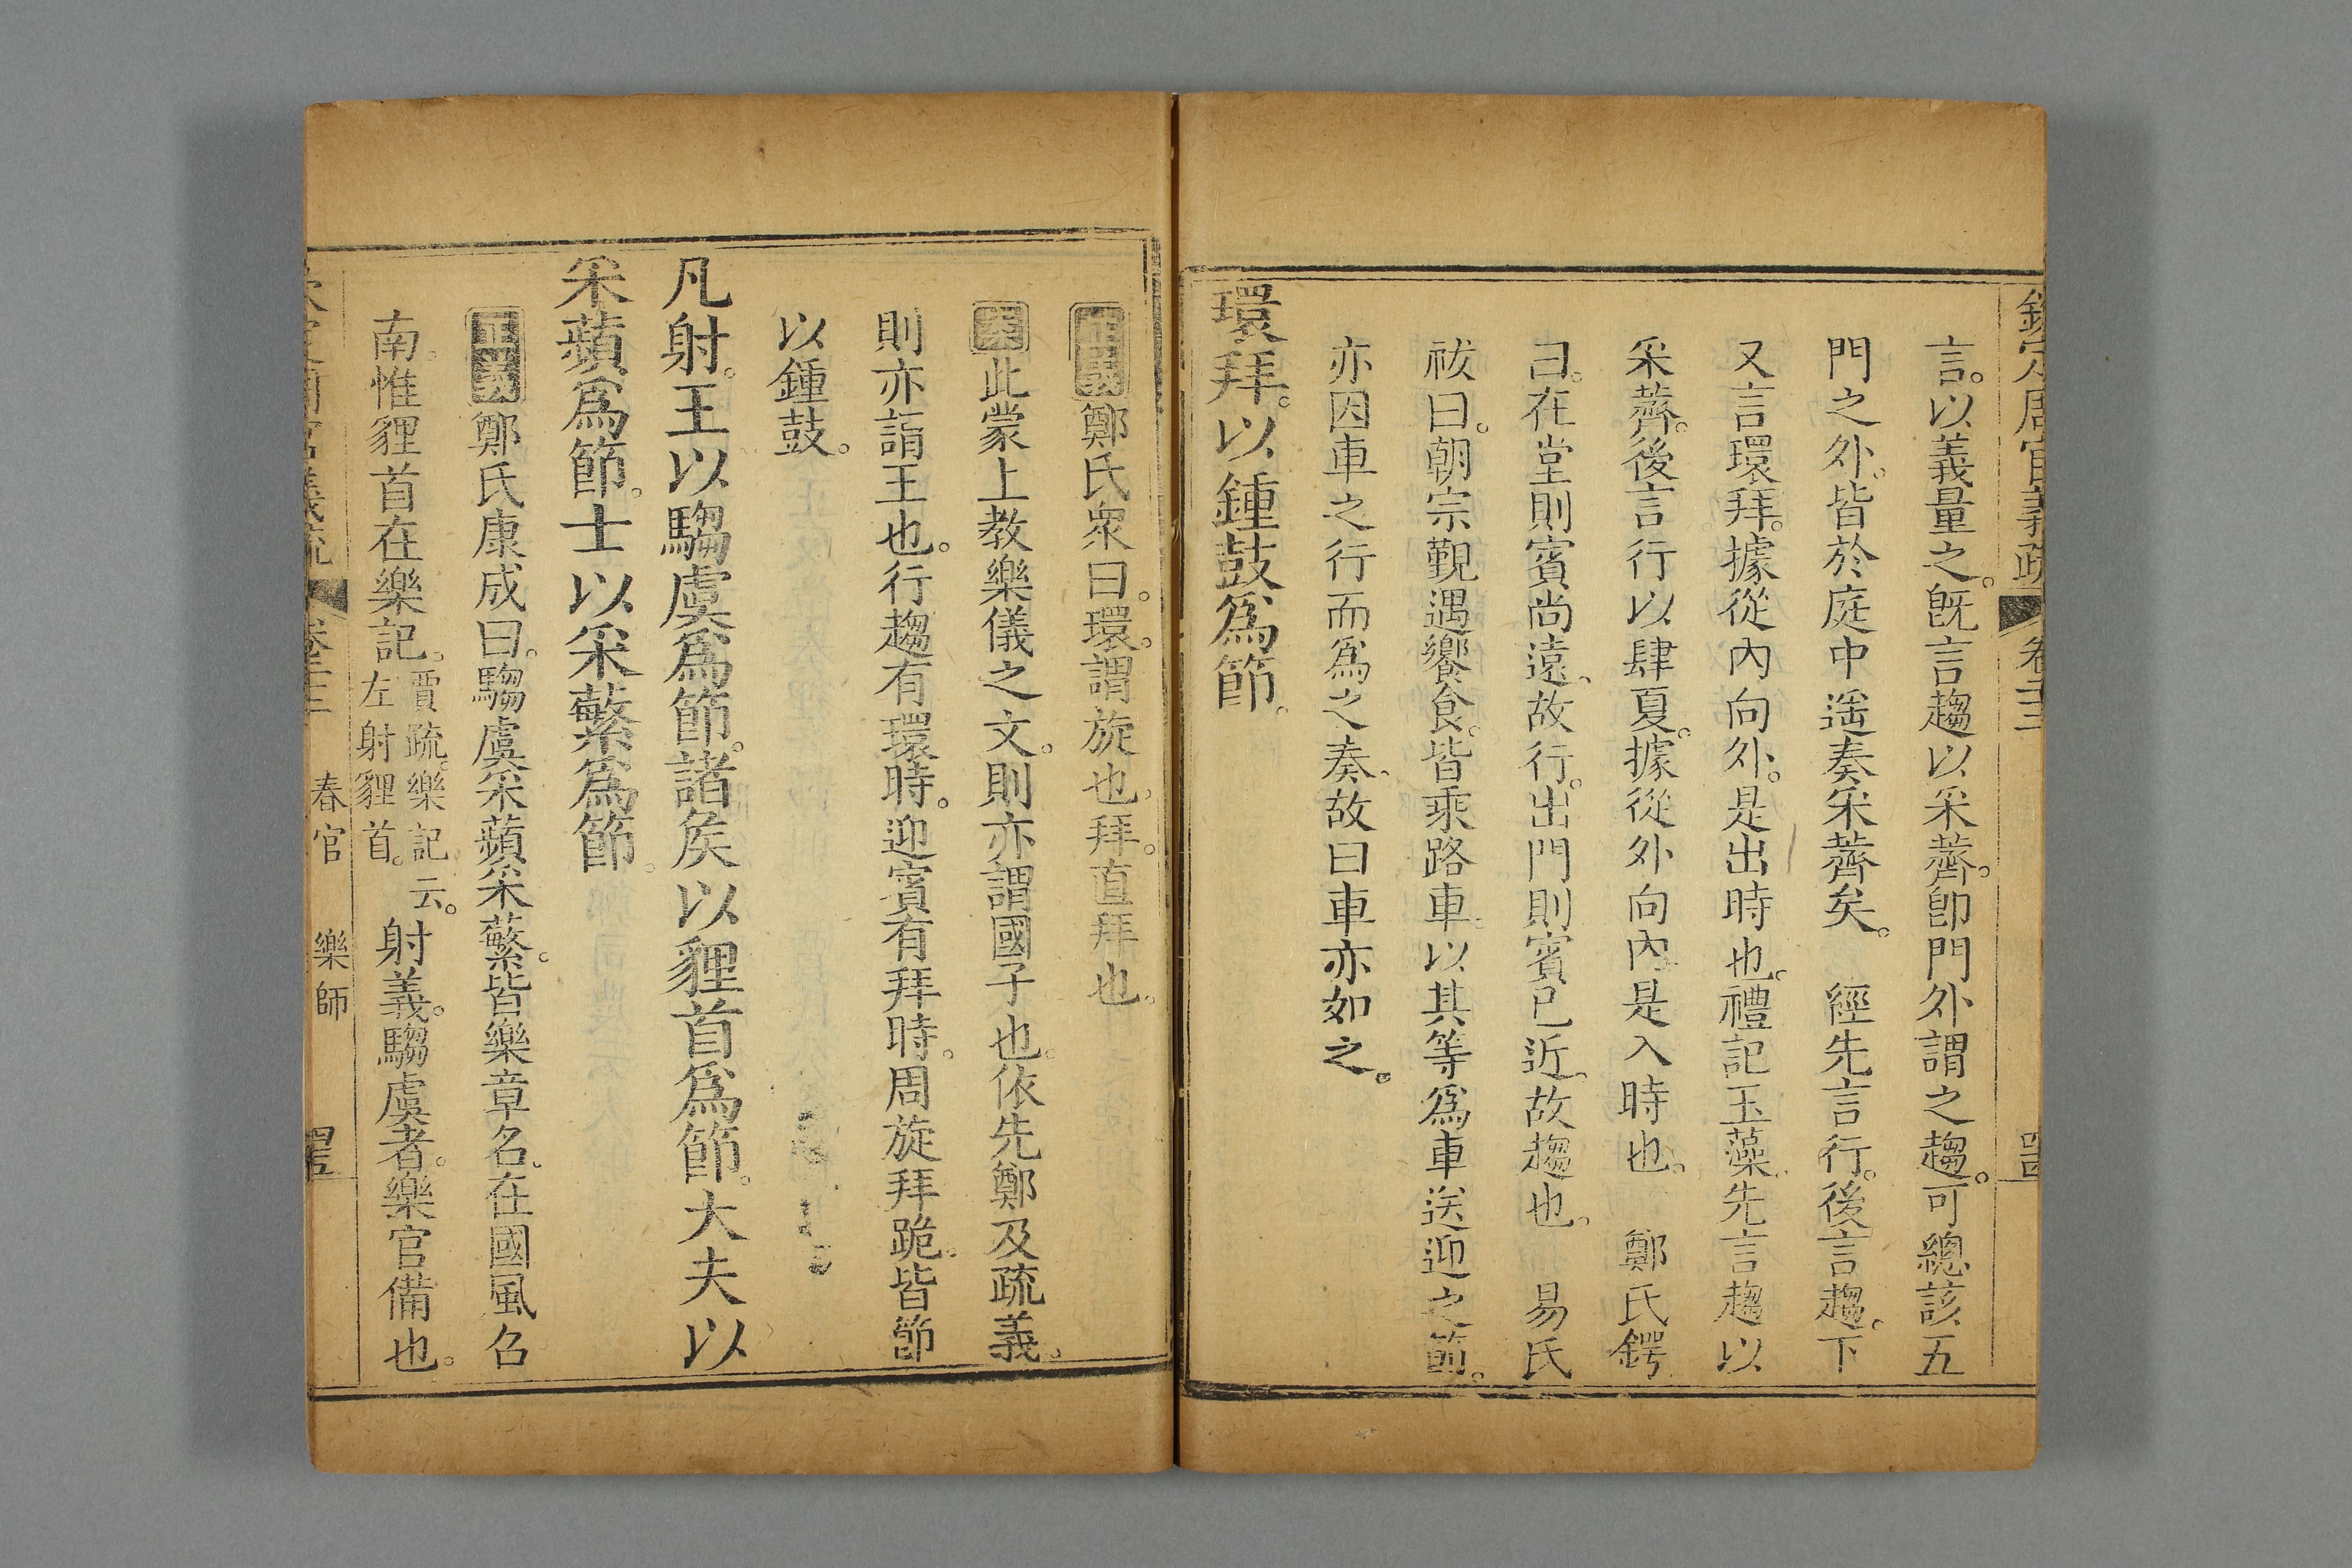 欽定周官義疏 卷二十三 四十四
言。以義量之。既言趨以采薺。卽門外謂之趨。可總該五
門之外。皆於庭中遥奏采薺矣。 經先言行。後言趨。下
又言環拜。據從內向外。是出時也。禮記玉藻。先言趨以
采薺。後言行以肆夏。據從外向內。是入時也。 鄭氏鍔
曰。在堂則賓尚遠。故行。出門則賓已近。故趨也。 易氏
祓曰。朝宗覲遇饗食。皆乘路車。以其等爲車送迎之節。
亦因車之行而爲之奏。故曰車亦如之。
環拜。以鍾鼓爲節。
正義鄭氏衆曰。環。謂旋也。拜。直拜也。
案此蒙上教樂儀之文。則亦謂國子也。依先鄭及疏義。
則亦謂王也。行趨有環時。迎賓有拜時。周旋拜跪。皆節
以鍾鼓。
凡射。王以騶虞爲節。諸矦以貍首爲節。大夫以
采蘋爲節。士以采蘩爲節。
正義鄭氏康成曰。騶虞采蘋采蘩。皆樂章名。在國風召
南。惟貍首在樂記。賈疏。樂記云。左射貍首。射義。騶虞者。樂官備也。
欽定周官義疏 卷二十三 春官 樂師 四十五